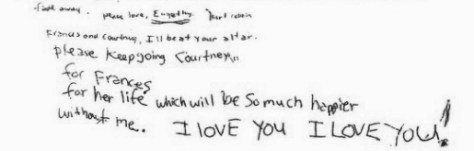 fade away. peace, love, Empathy. Kurt Cobain
Frances and Courtney, I'll be at your altar.
please Keep going Courtney,,
for Frances
for her life which will be so much happier
without me. I LOVE YOU I LOVE YOU!